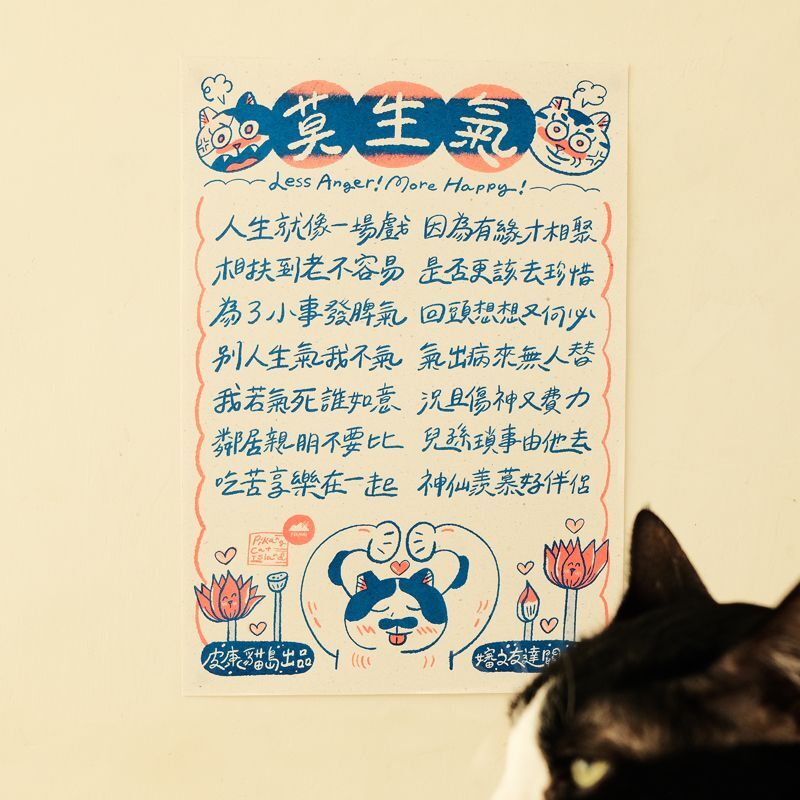 莫生氣
Less Anger! More Happy!
人生就像一場戲 因為有緣才相聚
相扶到老不容易 是否更該去珍惜
為了小事發脾氣 回頭想想又何必
別人生氣我不氣 氣出病來無人替
我若氣死誰如意 況且傷神又費力
鄰居親朋不要比 兒孫瑣事由他去
吃苦享樂在一起 神仙羨慕好伴侶
Pikang
Cat
Island
皮康貓島出品
友達